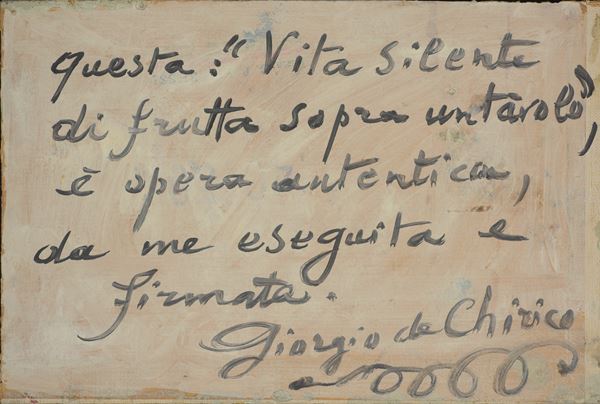 questa: "Vita silente
di frutta sopra un tavolo",
è opera autentica,
da me eseguita e
firmata.
Giorgio de Chirico